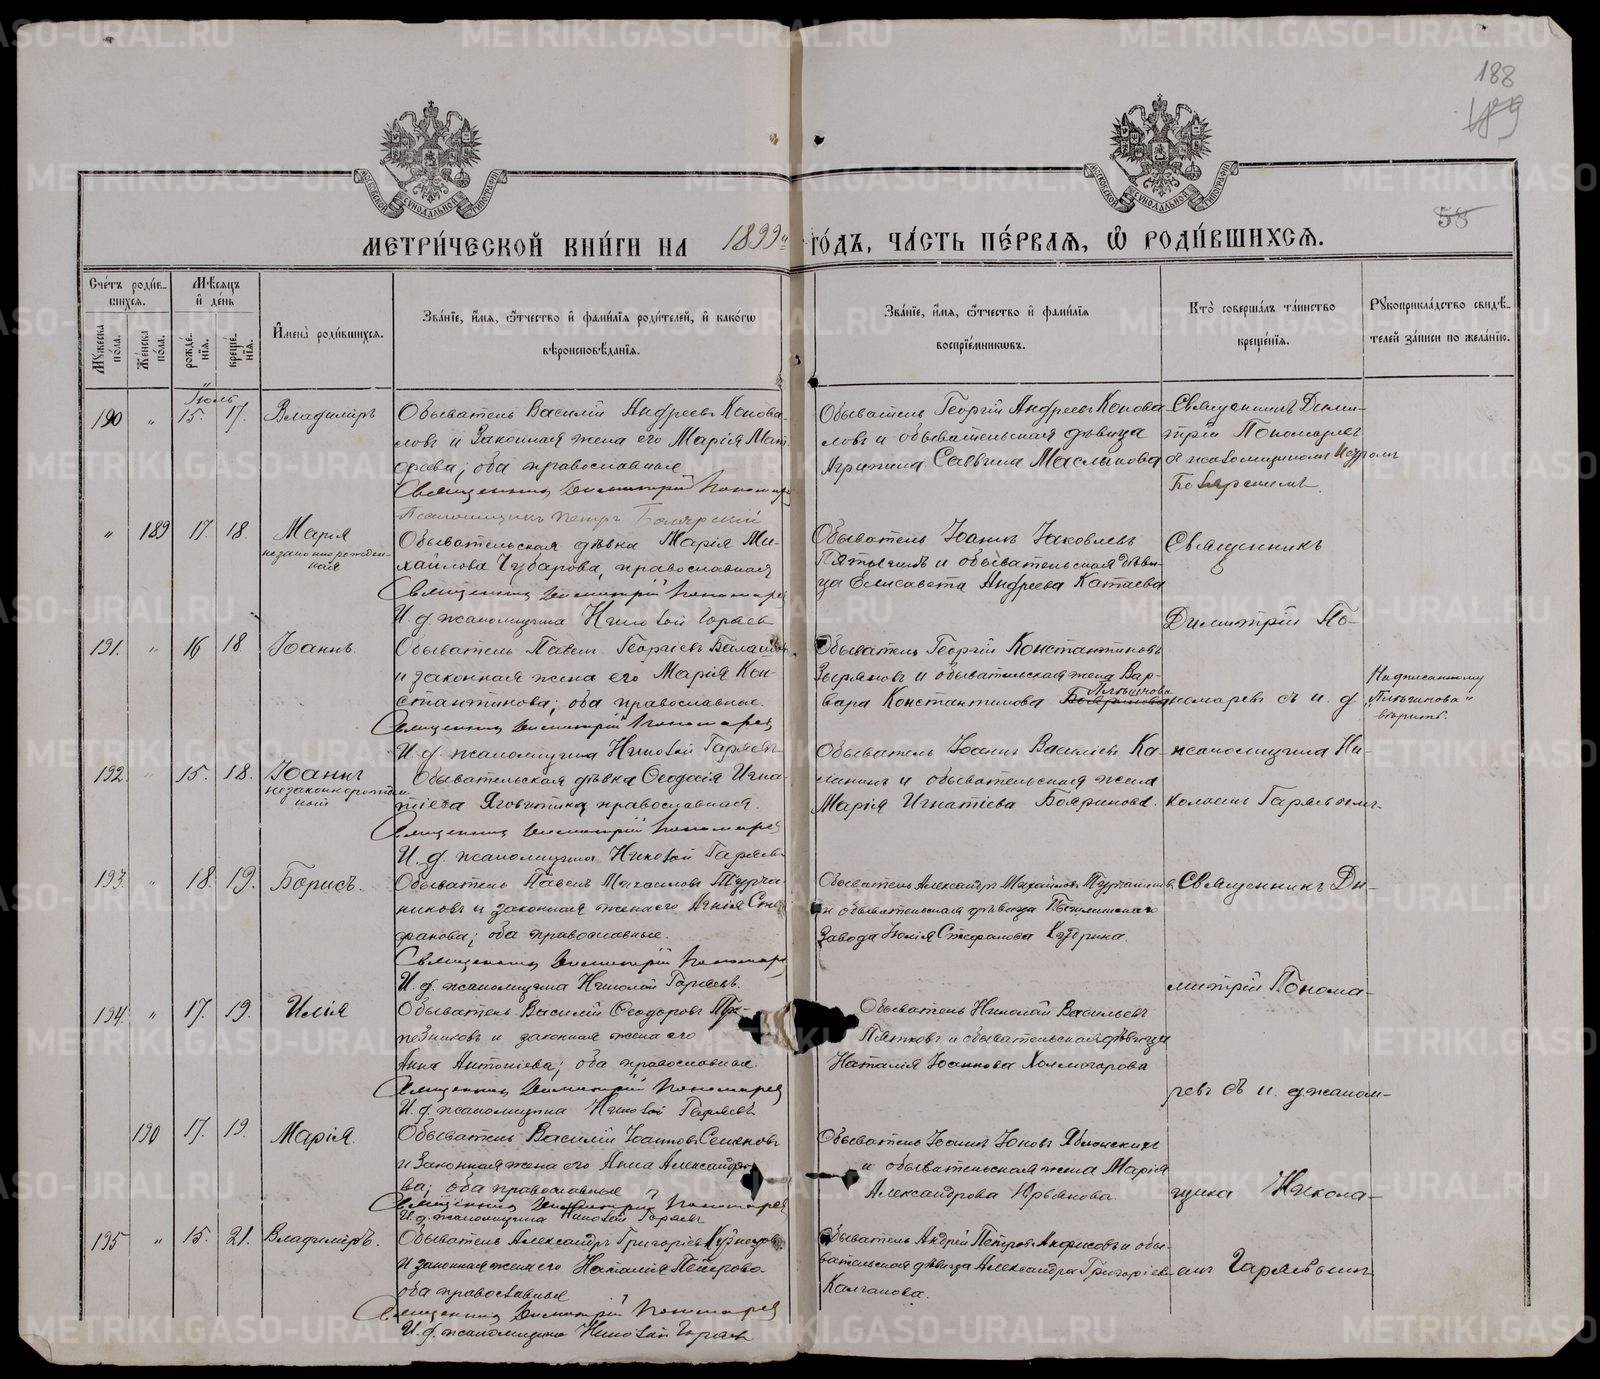 188
189
58
МЕТРИ́ЧЕСКОЙ КНИ́ГИ НА 1899й ГО́ДЪ, ЧА́СТЬ ПЕ́РВАѦ, Ѡ҆ РОДИ́ВШИХСѦ.
Сче́тъ роди́в-
шихсѧ.
Мꙋ́жеска по́ла.
Же́нска по́ла.
Мѣ́сѧцъ
и҆ де́нь
рожде́-
нїѧ.
креще́-
нїѧ.
И҆мена̀ роди́вшихсѧ.
Зва́нїе, и҆́мѧ, ѻ҆́тчество и҆ фами́лїѧ роди́телей, и҆ како́гѡ
вѣроисповѣ́данїѧ.
Зва́нїе, и҆́мѧ, ѻ҆́тчество и҆ фами́лїѧ
воспрїе́мникѡвъ.
Кто̀ соверша́лъ та́инство
креще́нїѧ.
Рꙋкоприкла́дство свидѣ́-
телей за́писи по жела́нїю.
Іюль
190 " 15. 17. Владиміръ
Обыватель Василій Андреевъ Конова-
ловъ и Законная жена его Марія Мат-
ѳеева; оба православные
Священникъ Димитрій Пономарев
Псаломщикъ Петръ Боярскій
Обыватель Георгій Андреевъ Конова-
ловъ и обывательская дѣвица
Агрипина Саввина Маслыкова
Священникъ Дими-
трій Пономаревъ
съ псаломщикомъ Петромъ
Боярскимъ.
" 189 17. 18. Марія
незаконнорожден-
ная
Обывательская дѣвка Марія Ми-
хайлова Чубарова, православная
Священникъ Димитрій Пономарев
И. д. псаломщика Николай Гаряевъ
Обыватель Іоаннъ Іаковлевъ
и обывательская дѣви-
ца Елисавета Андреева Катаева
Священникъ
Димитрій По-
191. " 16 18 Іоаннъ.
Обыватель Павелъ Георгіевъ
и законная жена его Марія Кон-
стантинова; оба православные.
Священникъ Димитрій Пономарев
И. д. псаломщика Николай Гаряевъ
Обыватель Георгій Константиновъ
Зыряновъ и обывательская жена Вар-
вара Константинова
номаревъ съ и. д.
Надписанному
вѣрить.
192. " 15. 18. Іоаннъ
незаконнорожден-
ный
Обывательская дѣвка Ѳеодосія Игна-
тіева православная.
Священникъ Димитрій Пономарев
И. д. псаломщика Николай Гаряевъ
Обыватель Іоаннъ Василіевъ Ка-
лининъ и обывательская жена
Марія Игнатіева Бояринова.
псаломщика Ни-
колаемъ Гаряевымъ
193. " 18. 19. Борисъ.
Обыватель Павелъ Михаиловъ Турча-
никовъ и законная жена его Агнія Сте-
фанова; оба православные.
Священникъ Димитрій Пономарев
И. д. псаломщика Николай Гаряевъ.
Обыватель Александръ Михайловъ
и обывательская дѣвица
Завода Юлія Стефанова
Священникъ Ди-
митрій Понома-
194. " 17. 19. Илія
Обыватель Василій Ѳеодоровъ
и законная жена его
Анна Антоніева; оба православные.
Священникъ Димитрій Пономарев
И. д. псаломщика Николай Гаряевъ
Обыватель Николай Васильевъ
Пятковъ и обывательская дѣвица
Наталія Іоаннова Холмогорова
ревъ съ и. д псалом-
190 17. 19. Марія
Обыватель Василій Іоанновъ Семеновъ
и Законная жена его Анна Александро-
ва; оба православные
Священникъ Димитрій Пономарев
И. д. псаломщика Николай Гаряевъ
Обыватель Іоаннъ Іоновъ Яблонскихъ
и обывательская жена Марія
Александрова
щика Никола-
195 " 15. 21. Владиміръ.
Обыватель Александръ Григоріевъ Кузнецовъ
и законная жена его Наталія Петрова
оба православные
Священникъ Димитрій Пономарев
И. д. псаломщика Николай Гаряевъ
Обыватель Андрей Петровъ Анфисовъ и обы-
вательская дѣвица Александра Григоріева
Калганова.
емъ Гаряевымъ
METRIKI.GASO-URAL.RU